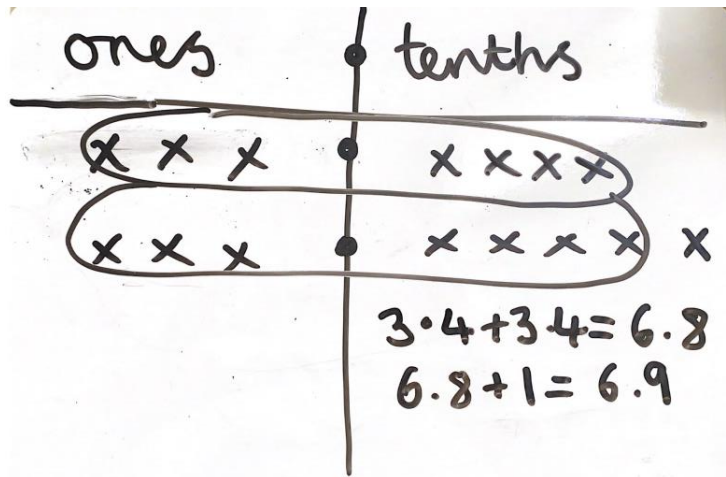 ones • tenths
x x x • x x x x
x x x • x x x x x
3·4+3·4=6.8
6.8+1=6.9